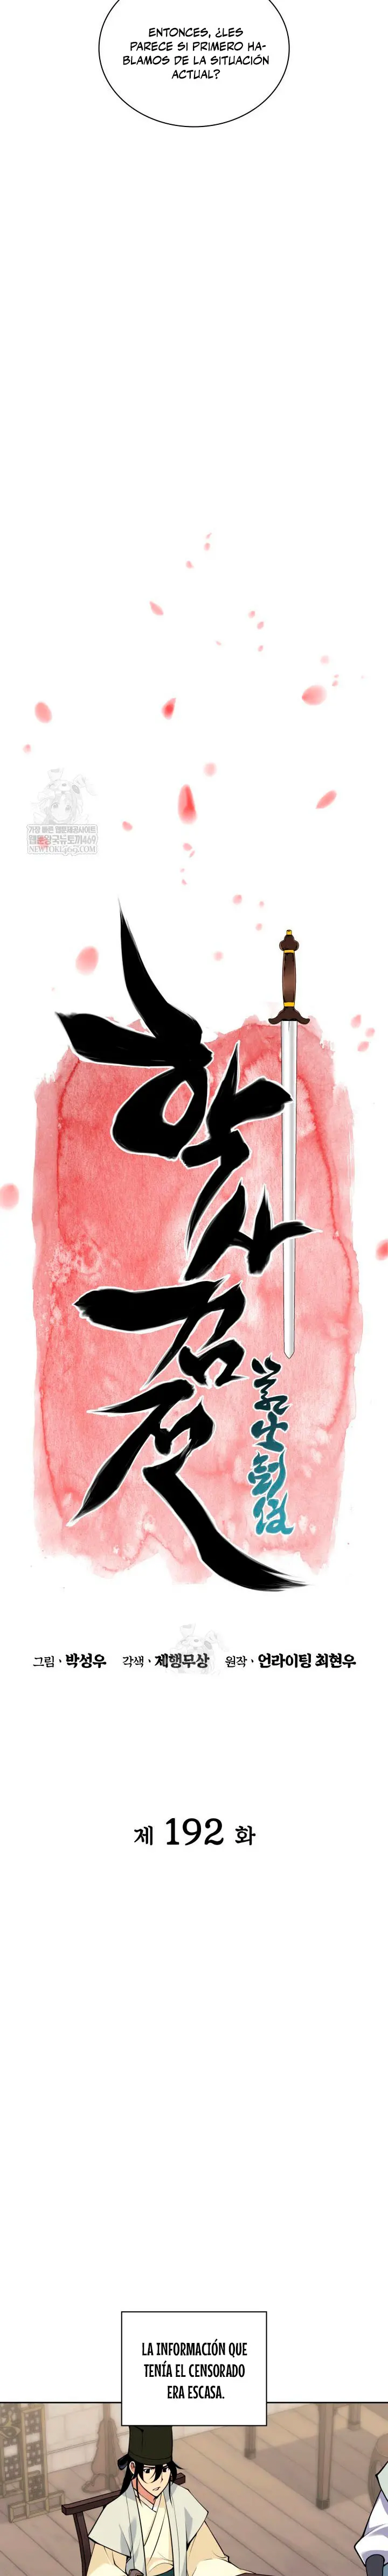 ENTONCES, ¿LES
PARECE SI PRIMERO HA-
BLAMOS DE LA SITUACIÓN
ACTUAL?
가장 빠른 웹툰제공사이트
NEWTOKI469.COM
학사
검전
그림 · 박성우 각색 · 제행무상 원작 · 언라이팅 최현우
제 192 화
LA INFORMACIÓN QUE
TENÍA EL CENSORADO
ERA ESCASA.